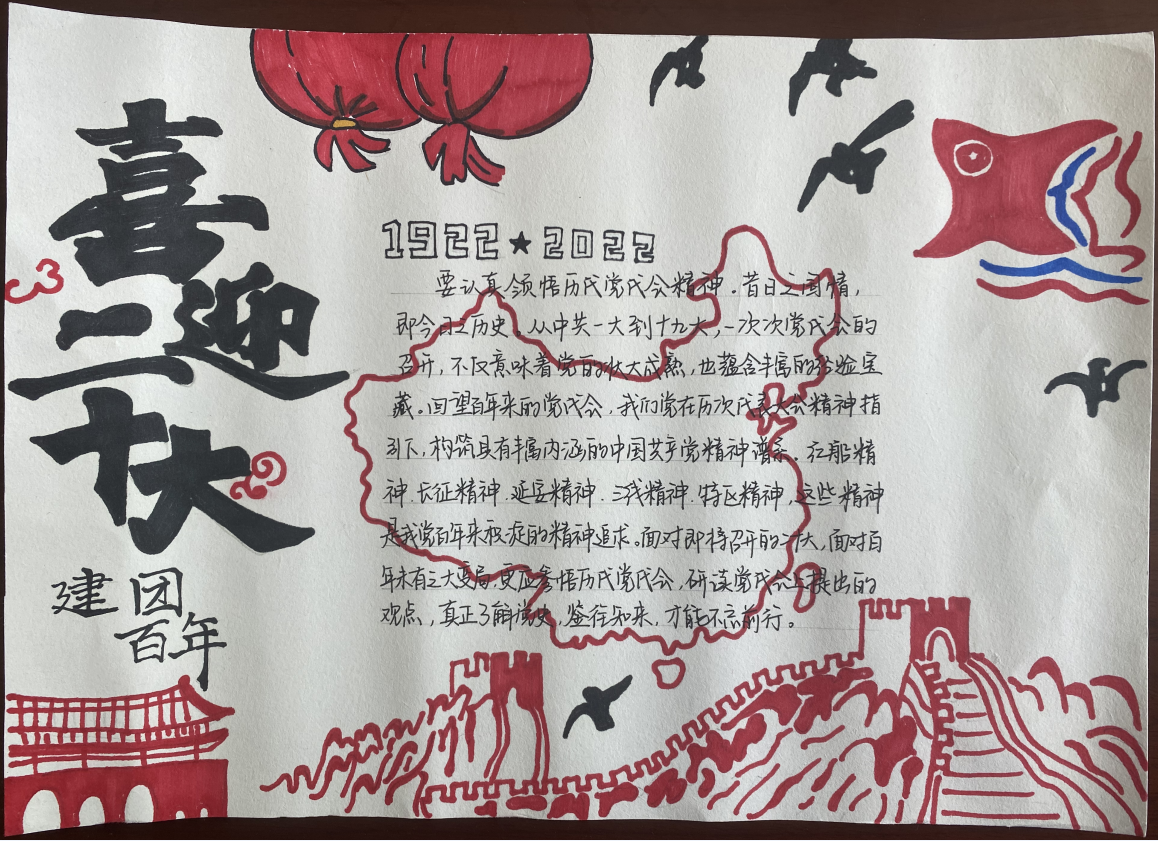 喜迎
二十大
建团
百年
1922★2022
要认真领悟历代党代会精神.昔日之国情,
即今日之历史.从中共一大到十九大,一次次党代会的
召开,不仅意味着党的壮大成熟,也蕴含丰富的经验宝
藏。回望百年来的党代会,我们党在历次代表大会精神指
引下,构筑具有丰富内涵的中国共产党精神谱系.红船精
神.长征精神.延安精神.三线精神.特区精神,这些精神
是我党百年来积淀的精神追求。面对即将召开的二十大,面对百
年未有之大变局,更应参悟历代党代会,研读党代会上提出的
观点,真正了解党史,鉴往知来,才能不忘前行。